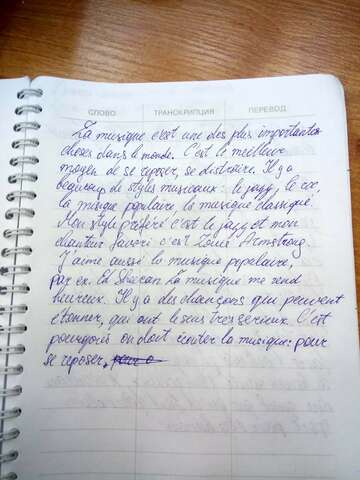 СЛОВО ТРАНСКРИПЦИЯ ПЕРЕВОД
La musique c'est une des plus importantes
choses dans le monde. C'est le meilleur
moyen de se reposer, se distraire. Il y a
beaucoup de styles musicaux: le jazz, le roc,
la musique populaire, la musique classique.
Mon style préféré c'est le jazz et mon
chanteur favori c'est Louis Armstrong.
J'aime aussi la musique populaire,
par ex. Ed Sheeran. La musique me rend
heureux. Il y a des chançons qui peuvent
étonner, qui ont le sens très sérieux. C'est
pourquois on doit écouter la musique: pour
se reposer,